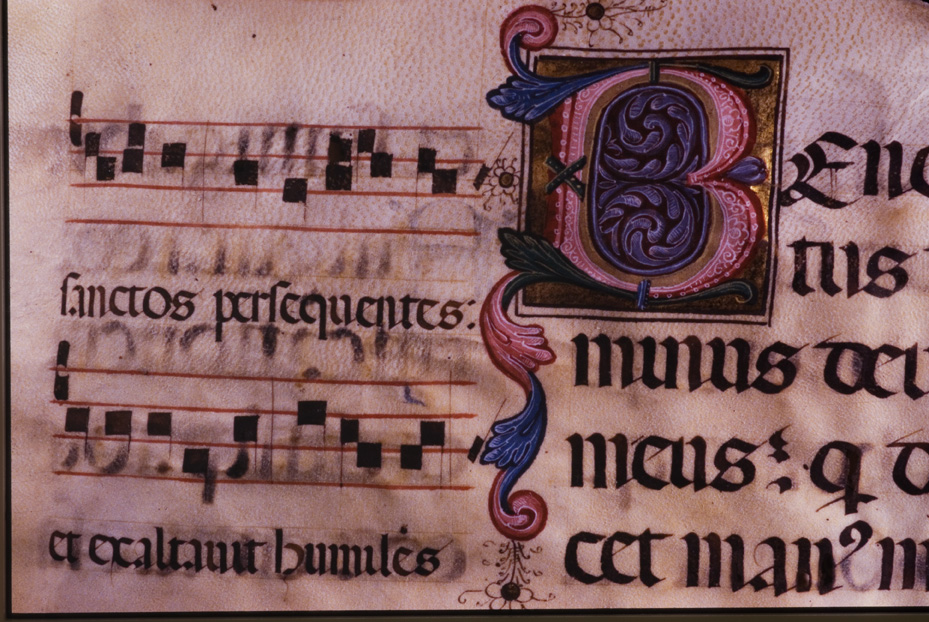 sanctos persequentes:
et exaltauit humiles
BEned
tus
minus deus
meus: q d
cet man⁹ m